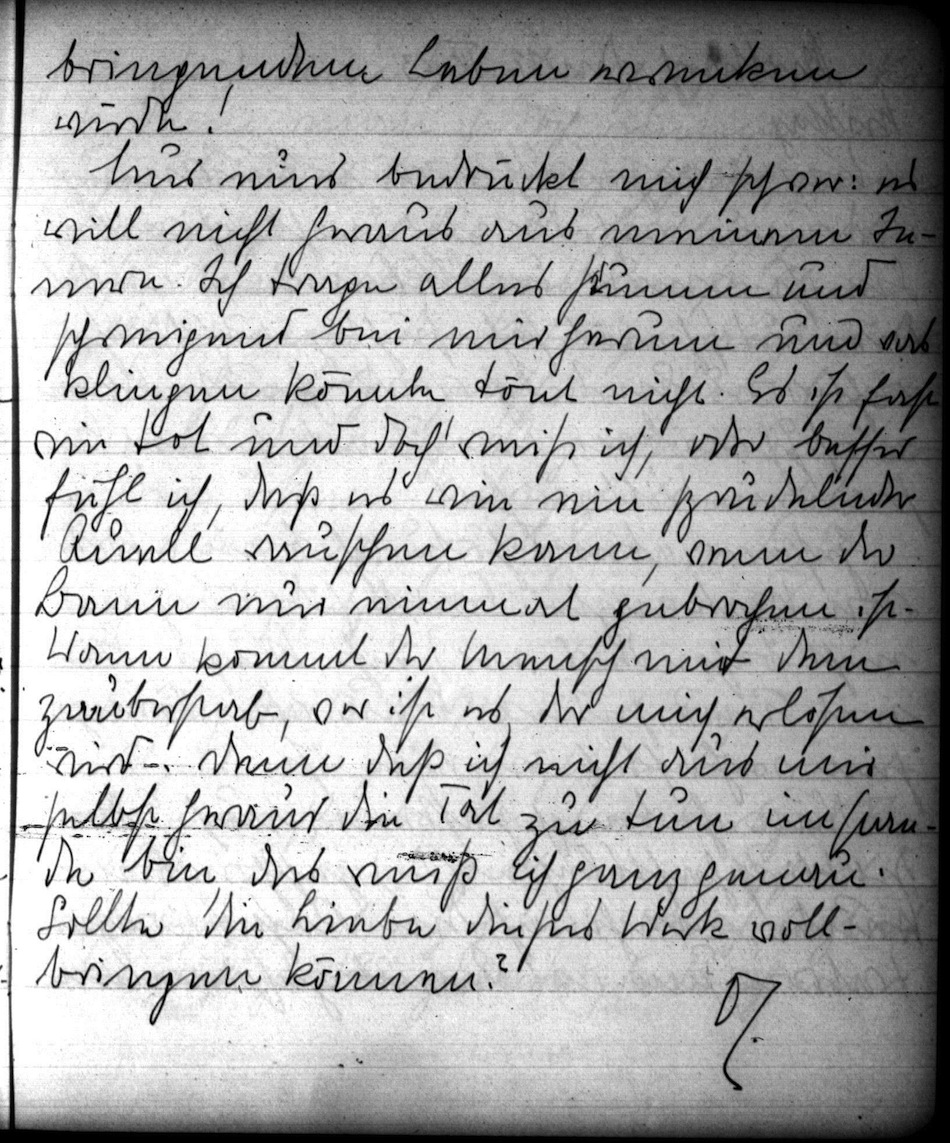 bringenden Leben erwecken
würde!
Nur eins bedrückt mich schwer: es
will nicht heraus aus meinem In-
nern. Ich trage alles stumm und
schweigend bei mir herum und was
klingen könnte tönt nicht. Es ist fast
wie tot und doch weiß ich, oder besser
fühl ich, daß es wie ein sprudelnder
Quell rauschen kann, wenn der
Bann nur einmal gebrochen ist.
Wann kommt der Mensch mit dem
Zauberstab, wer ist es, der mich erlösen
wird -. denn daß ich nicht aus mir
selbst heraus die Tat zu tun imstan-
de bin das weiß ich ganz genau.
Sollte die Liebe dieses Werk voll-
bringen können?